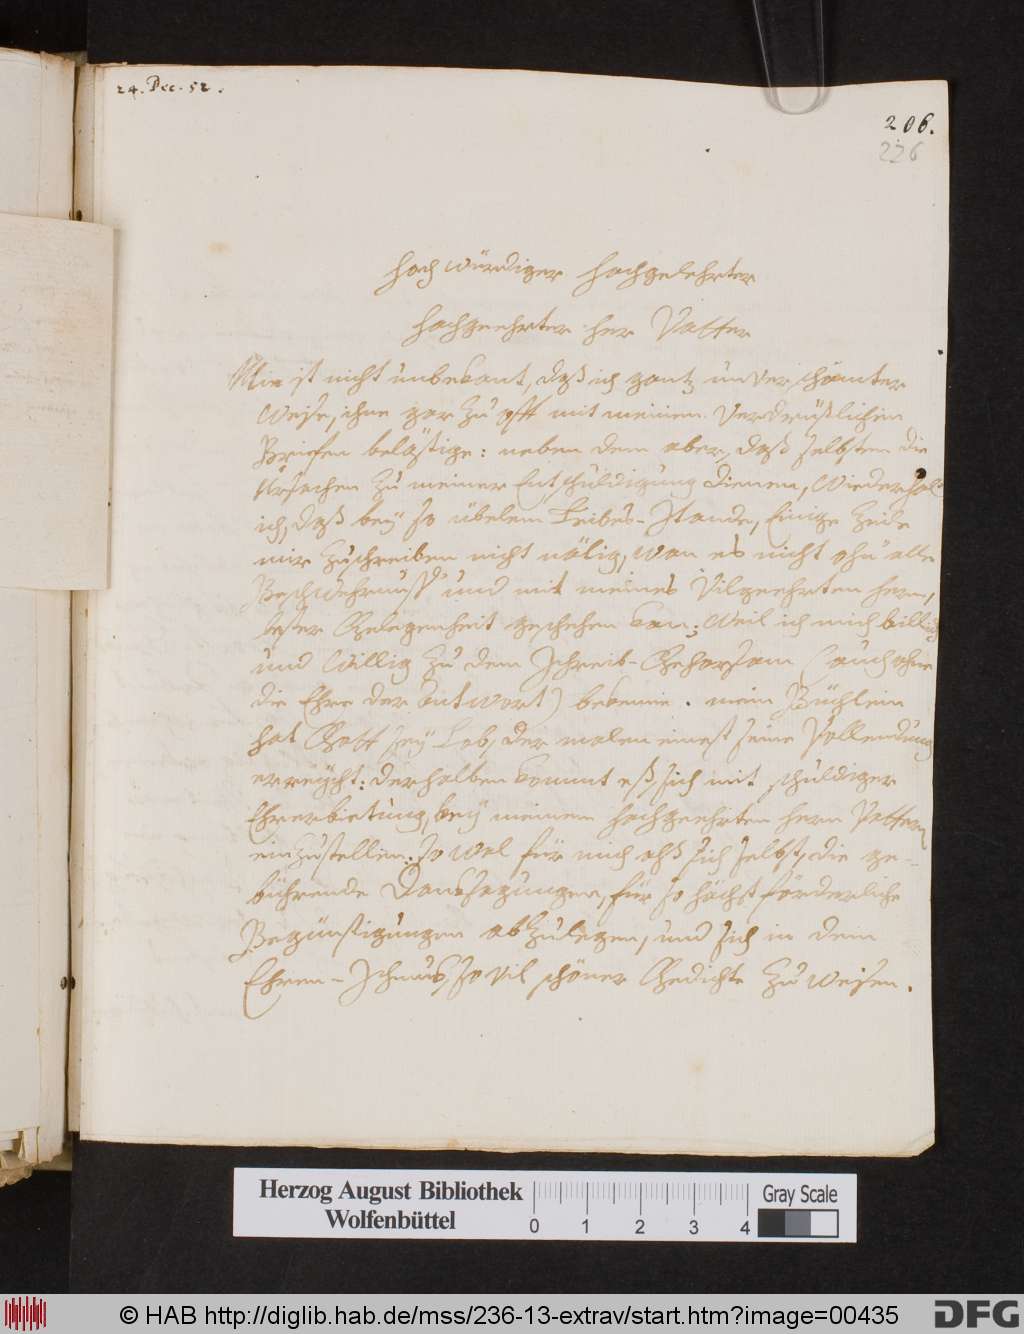 24. Dec. 52.
206.
226
Hochwürdiger Hochgelehrter
Hochgeehrter Her Vatter
Mir ist nicht unbekant, daß ich gantz unverschämter
Weise, ihne gar zu offt mit meinen Verdrüßlichen
Briefen belästige: neben dem aber, daß selbsten die
Ursachen zu meiner Entschuldigung dienen, Wiederhol
ich, daß bey so übelem Leibes-Stande, Einige Zeile
mir zuschreiben nicht nötig, wan es nicht ohn alle
Beschwehrnuß und mit meines Vilgeehrten Herrn,
bester Gelegenheit geschehen kan; Weil ich mich billig
und Willig zu dem Schreib-Gehorsam (auch ohne
die Ehre der antwort) bekenne. mein Büchlein
hat Gott sey Lob, der malen einest seine Vollendung
erreicht: derhalben kommt eß, sich mit schuldiger
Ehrerbietung, bey meinem Hochgeehrten Herrn Vattern
einzustellen: so wol für mich alß sich selbst, die ge-
bührende Danksagungen, für so höchst förderliche
Begünstigungen abzulegen, und sich in dem
Ehren-Schmuk, so vil schöner Gedichte zu weisen.
Herzog August Bibliothek
Wolfenbüttel
0 1 2 3 4
Gray Scale
© HAB http://diglib.hab.de/mss/236-13-extrav/start.htm?image=00435
DFG